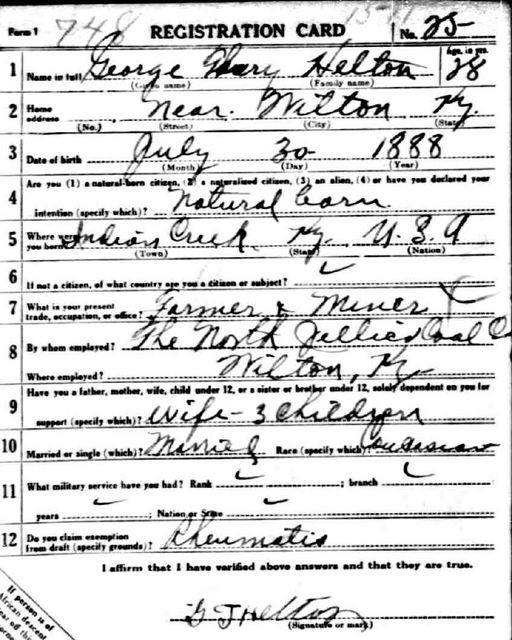 Form 1 748 REGISTRATION CARD No. 25
Age, in yrs.
1 Name in full George Henry Helton 28
(Given name) (Family name)
2 Home address Near. Wilton Ky.
(No.) (Street) (City) (State)
3 Date of birth July 30 1888
(Month) (Day) (Year)
4 Are you (1) a natural-born citizen, (2) a naturalized citizen, (3) an alien, (4) or have you declared your
intention (specify which)? Natural born
5 Where were you born? Indian Creek Ky. U.S.A
(Town) (State) (Nation)
6 If not a citizen, of what country are you a citizen or subject?
7 What is your present trade, occupation, or office? Farmer & Miner
8 By whom employed? The North Jellico Coal Co
Where employed? Wilton, Ky
9 Have you a father, mother, wife, child under 12, or a sister or brother under 12, solely dependent on you for
support (specify which)? Wife - 3 children
10 Married or single (which)? Married Race (specify which)? Caucasian
11 What military service have you had? Rank ; branch
years ; Nation or State
12 Do you claim exemption from draft (specify grounds)? Rheumatis
I affirm that I have verified above answers and that they are true.
G J Helton
(Signature or mark)
If person is of
African descent